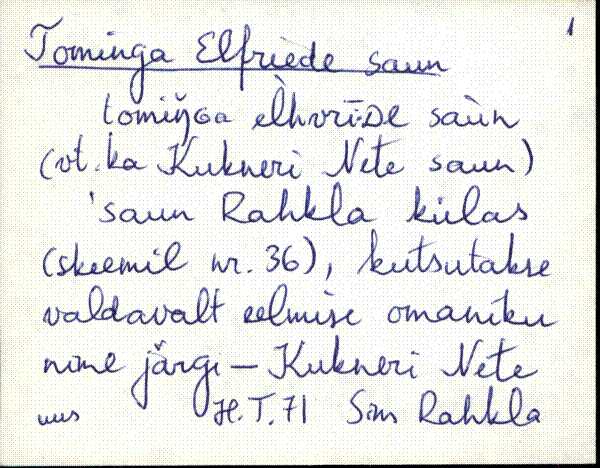 1
Tominga Elfriede saun
tomiŋGa èlhvrī·DE saùn
(vt. ka Kukneri Nete saun)
'saun Rahkla külas
(skeemil nr. 36), kutsutakse
valdavalt eelmise omaniku
nime järgi – Kukneri Nete
uus H.T. 71 Sim Rahkla